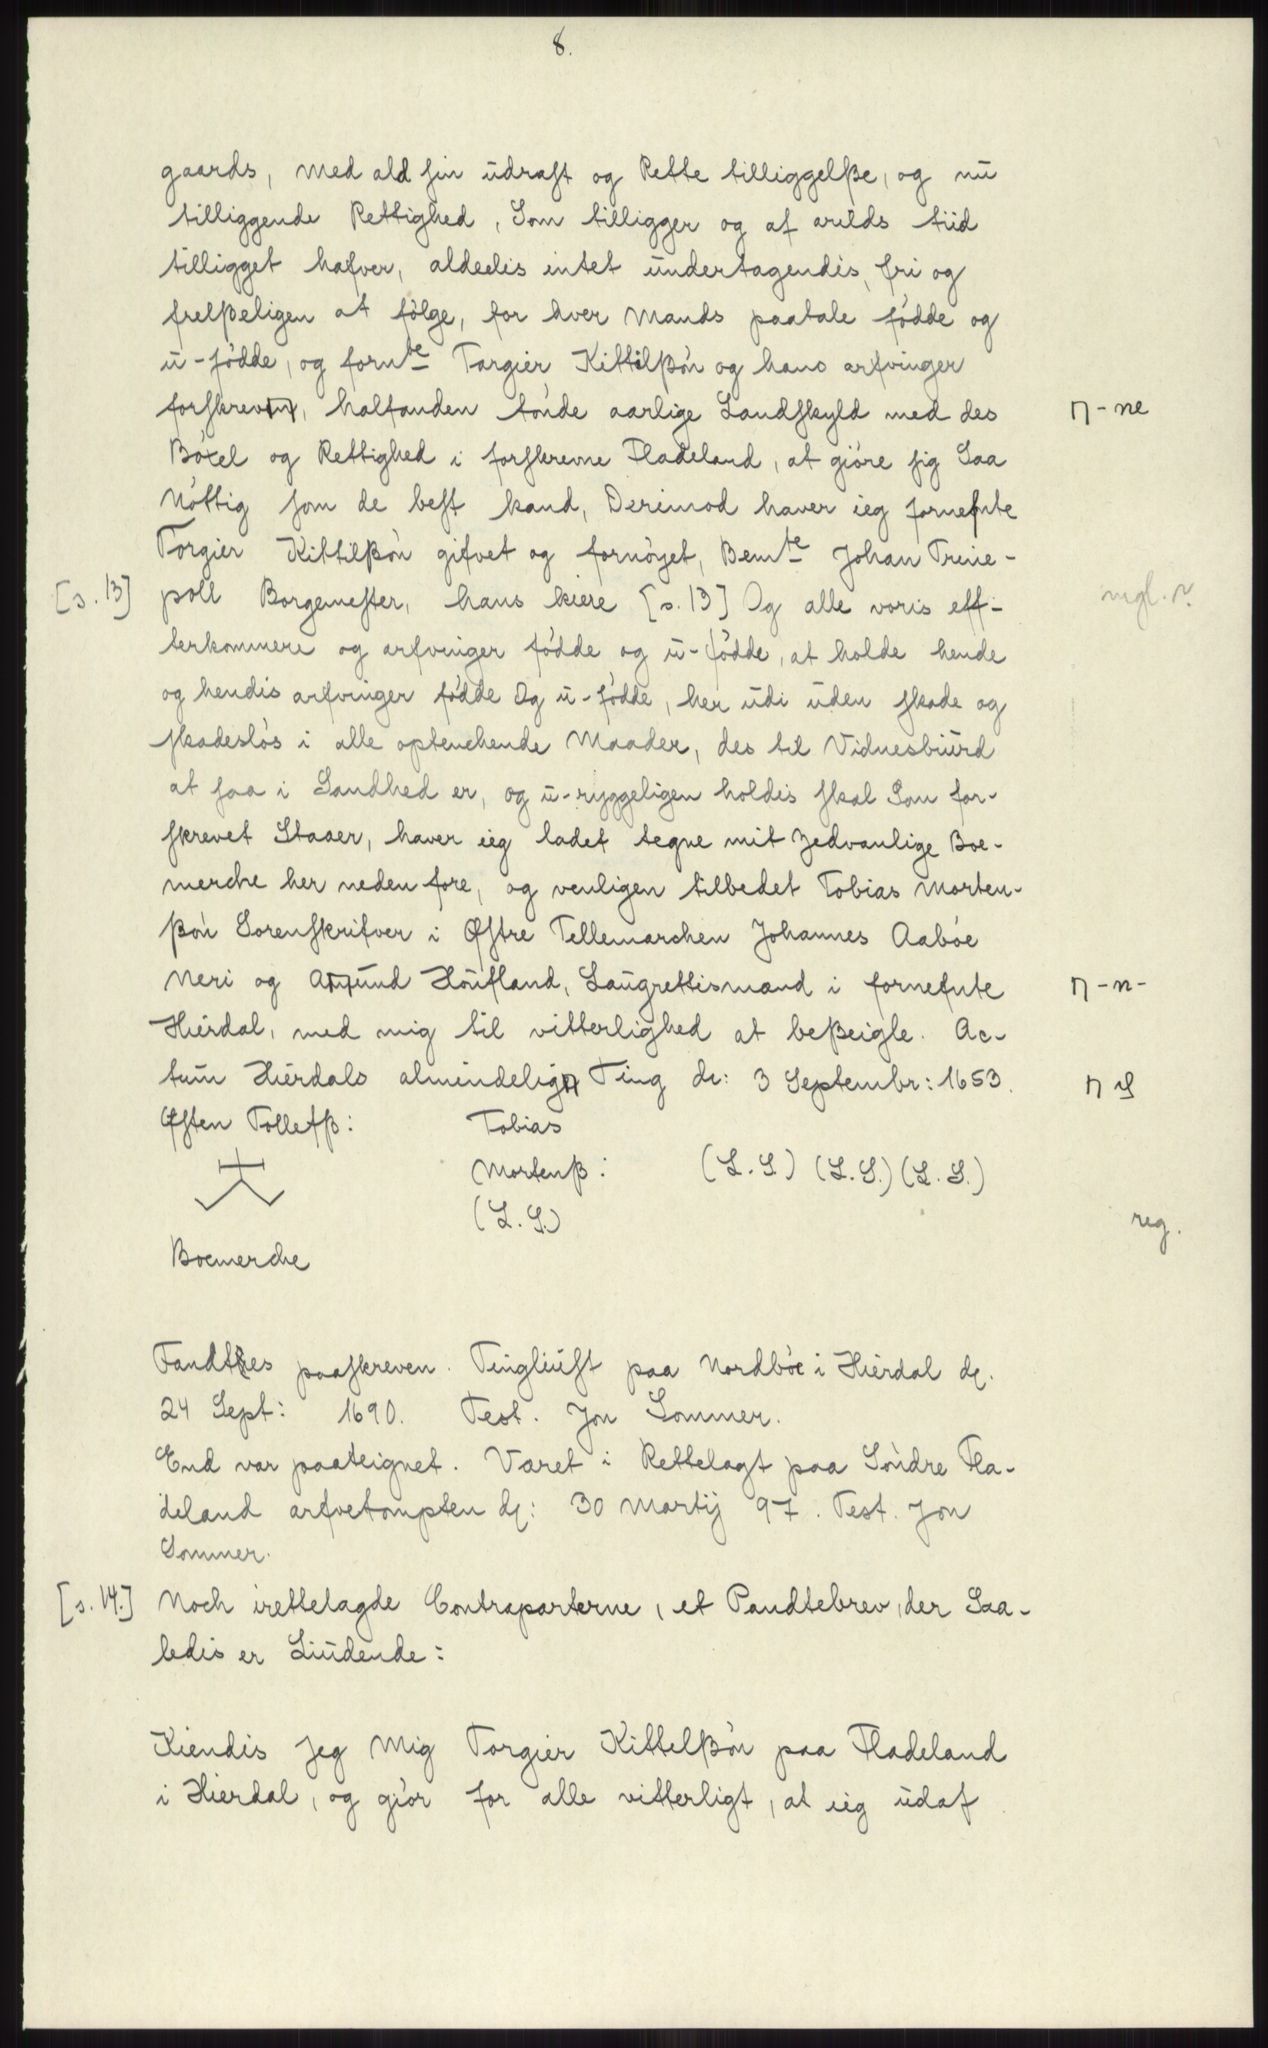 8.
gaards, med ald sin udraft og Rette tilliggelße, og nu
tilliggende Rettighed, Som tilligger og af arilds tiid
tilligget hafver, aldeelis intet undertagendis, fri og
frelßeligen at følge, for hver Mands paatale fødde og
u-fødde, og fornte Torgier Kittilßøn og hans arfvinger
forskrevn, halfanden tønde aarlige Landskyld med des
n - ne
Bøxel og Rettighed i forskrevne Fladeland, at giøre sig Saa
Nøttig som de best kand, Derimod haver ieg fornefnte
Torgier Kittilßøn gifvet og fornøyet, Bemte Johan Treie-
[s. 13] poll Borgemester, hans kiere [s. 13] Og alle voris eff-
mgl. r.
terkommere og arfvinger fødde og u-fødde, at holde hende
og hendis arfvinger fødde Og u-fødde, her udi uden skade og
skadesløs i alle optenchende Maader, des til Vidnesbiurd
at saa i Sandhed er, og u-ryggeligen holdis skal Som for-
skrevet Staaer, haver ieg ladet tegne mit Zedvanlige Boe-
merche her neden fore, og venligen tilbedet Tobias Morten-
ßøn Sorenskrifver i Østre Tellemarchen Johannes Aabøe
Neri og Amund Høufland, Laugrettismænd i fornefnte
n - n -
Hierdal, med mig til vitterlighed at beßeigle. Ac-
tum Hierdals almindelign Ting dr: 3 Septembr: 1653.
Østen Tollefß: Tobias
Mortenß: (L.S.) (L.S.) (L.S.)
(L.S.)
reg.
Boemerche
Fandtes paaskreven. Tingliust paa Nordbøe i Hierdal d.
24 Sept: 1690. Test. Jon Sommer.
End var paateignet. Været i Rettelagt paa Søndre Fla-
deland arfvetompten d: 30 Martij 97. Test. Jon
Sommer.
[s. 14.] Noch irettelagde Contraparterne, et Pandtebrev, der Saa-
ledis er Liudende:
Kiendis Jeg Mig Torgier Kittelßøn paa Fladeland
i Hierdal, og giør for alle vitterligt, at ieg udaf